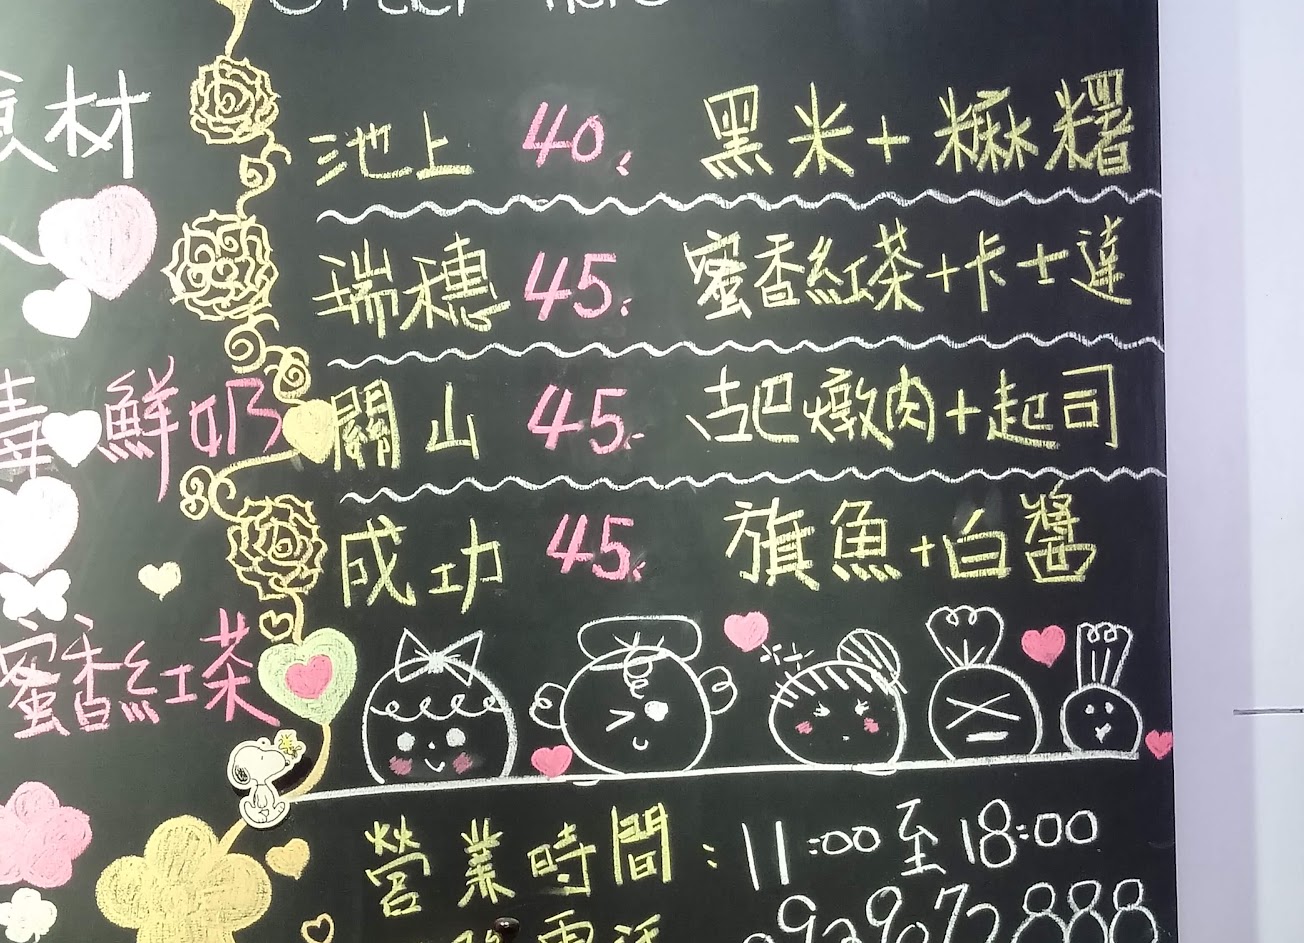 材
池上 40. 黑米+糜糬
瑞穗 45. 蜜香紅茶+卡士達
鮮奶
關山 45.- 古巴燉肉+起司
成功 45. 旗魚+白醬
蜜香紅茶
營業時間:11:00至18:00
電話